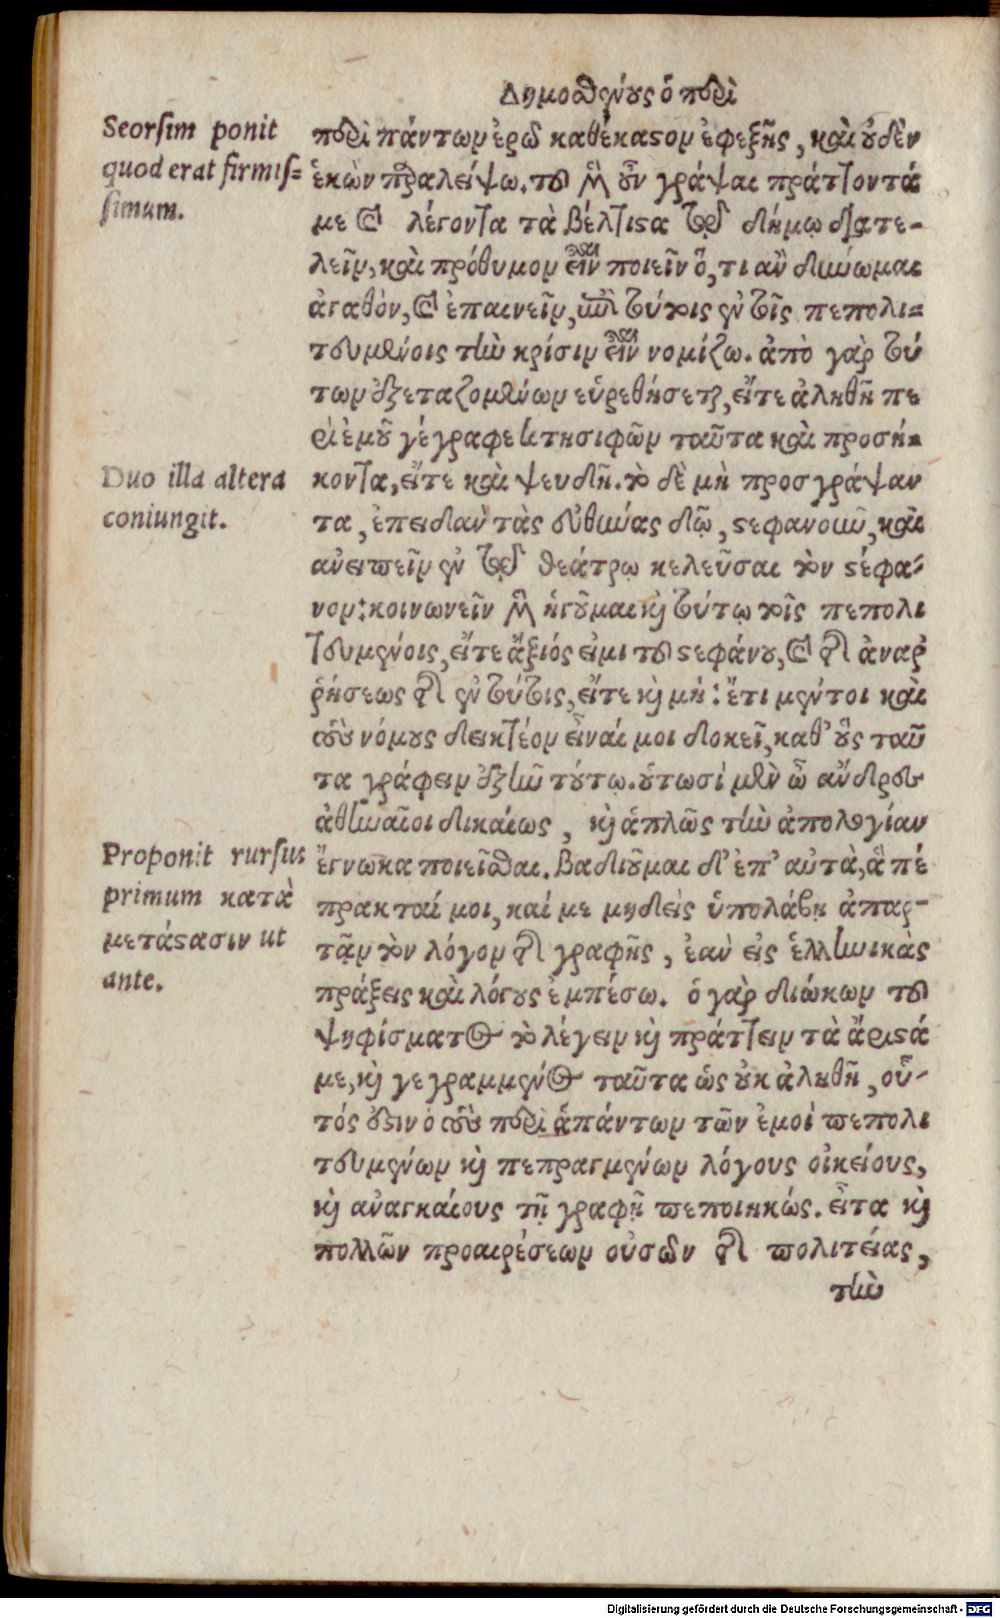 Δημοσθένους ὁ περὶ
Seorsim ponit
quod erat firmis=
simum.
περὶ πάντων ἐρῶ καθ' ἕκαστον ἐφεξῆς, καὶ οὐδὲν
ἑκὼν παραλείψω. τοῦ μὲν οὖν γράψαι πράττοντά
με καὶ λέγοντα τὰ βέλτιστα τῷ δήμῳ διατε-
λεῖν, καὶ πρόθυμον εἶναι ποιεῖν ὅ, τι ἂν δύνωμαι
ἀγαθὸν, καὶ ἐπαινεῖν, ἐπὶ τούτοις ἐν τοῖς πεπολι=
τευμένοις τὴν κρίσιν εἶναι νομίζω. ἀπὸ γὰρ τού
των ἐξεταζομένων εὑρεθήσεται, εἴτε ἀληθῆ πε
ρὶ ἐμοῦ γέγραφε κτησιφῶν ταῦτα καὶ προσή=
Duo illa altera
coniungit.
κοντα, εἴτε καὶ ψευδῆ. τὸ δὲ μὴ προσγράψαν
τα, ἐπειδὰν τὰς εὐθύνας δῷ, στεφανοῦν, καὶ
ἀνειπεῖν ἐν τῷ θεάτρῳ κελεῦσαι τὸν στέφα-
νον: κοινωνεῖν μὲν ἡγοῦμαι καὶ τούτῳ τοῖς πεπολι
τευμένοις, εἴτε ἄξιός εἰμι τοῦ στεφάνου, καὶ τῆς ἀναῤ
ῥήσεως τῆς ἐν τούτοις, εἴτε καὶ μή: ἔτι μέντοι καὶ
τοὺς νόμους δεικτέον εἶναί μοι δοκεῖ, καθ' οὓς ταῦ
τα γράφειν ἐξῆν τούτῳ. οὑτωσὶ μὲν ὦ ἄνδρες
ἀθηναῖοι δικαίως, καὶ ἁπλῶς τὴν ἀπολογίαν
Proponit rursus
primum κατὰ
μετάστασιν ut
ante.
ἔγνωκα ποιεῖσθαι. βαδιοῦμαι δ' ἐπ' αὐτὰ, ἃ πέ
πρακταί μοι, καί με μηδεὶς ὑπολάβῃ ἀπαρ-
τᾷν τὸν λόγον τῆς γραφῆς, ἐὰν εἰς ἑλληνικὰς
πράξεις καὶ λόγους ἐμπέσω. ὁ γὰρ διώκων τοῦ
ψηφίσματος τὸ λέγειν καὶ πράττειν τὰ ἄριστά
με, καὶ γεγραμμένος ταῦτα ὡς οὐκ ἀληθῆ, οὗ-
τός ἐστιν ὁ τοὺς περὶ ἁπάντων τῶν ἐμοὶ πεπολι
τευμένων καὶ πεπραγμένων λόγους οἰκείους,
καὶ ἀναγκαίους τῇ γραφῇ πεποιηκώς. εἶτα καὶ
πολλῶν προαιρέσεων οὐσῶν τῆς πολιτείας,
τὴν
Digitalisierung gefördert durch die Deutsche Forschungsgemeinschaft - DFG